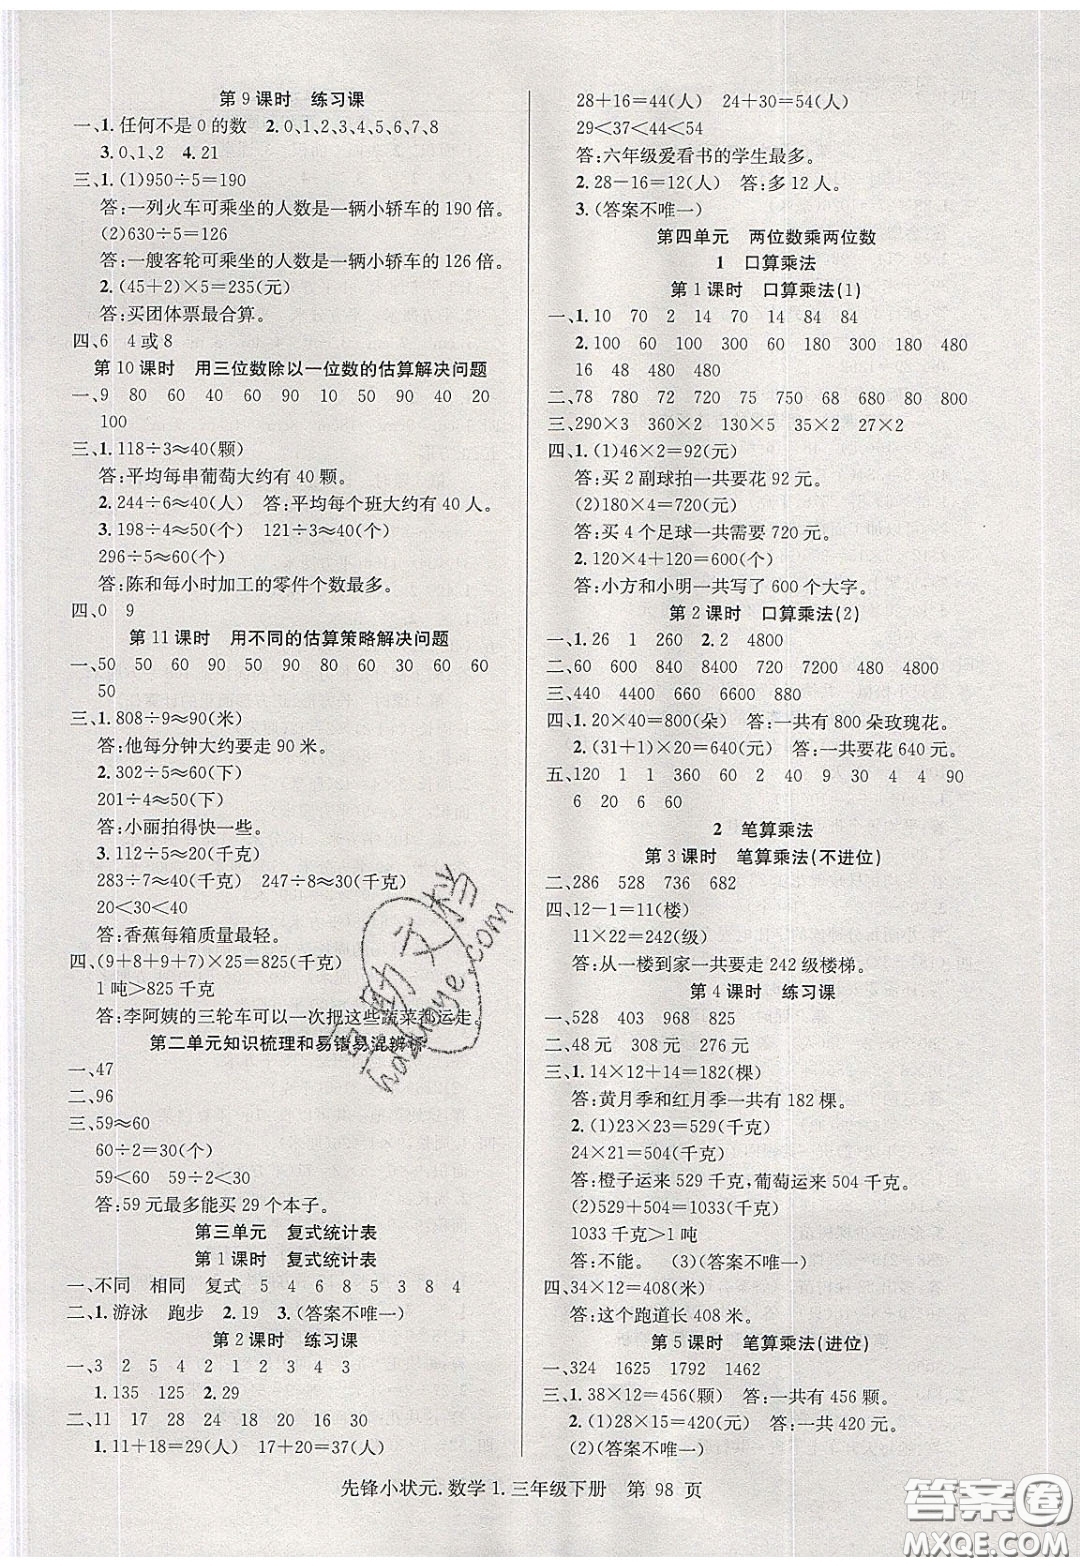 第9课时　练习课
一、1.任何不是0的数　2.0、1、2、3、4、5、6、7、8
3.0、1、2　4.21
三、1.(1)950÷5=190
答:一列火车可乘坐的人数是一辆小轿车的190倍。
(2)630÷5=126
答:一艘客轮可乘坐的人数是一辆小轿车的126倍。
2.(45+2)×5=235(元)
答:买团体票最合算。
四、6　4或8
第10课时　用三位数除以一位数的估算解决问题
一、9　80　60　40　60　90　10　50　90　40　20
100
三、1.118÷3≈40(颗)
答:平均每串葡萄大约有40颗。
2.244÷6≈40(人)　答:平均每个班大约有40人。
3.198÷4≈50(个)　121÷3≈40(个)
296÷5≈60(个)
答:陈和每小时加工的零件个数最多。
四、0　9
第11课时　用不同的估算策略解决问题
一、50　50　60　90　50　90　80　60　30　60　60
50
三、1.808÷9≈90(米)
答:他每分钟大约要走90米。
2.302÷5≈60(下)
201÷4≈50(下)
答:小丽拍得快一些。
3.112÷5≈20(千克)
283÷7≈40(千克)　247÷8≈30(千克)
20<30<40
答:香蕉每箱质量最轻。
四、(9+8+9+7)×25=825(千克)
1吨>825千克
答:李阿姨的三轮车可以一次把这些蔬菜都运走。
第二单元知识梳理和易错易混辨析
一、47
二、96
三、59≈60
60÷2=30(个)
59<60　59÷2<30
答:59元最多能买29个本子。
第三单元　复式统计表
第1课时　复式统计表
一、不同　相同　复式　5　4　6　8　5　3　8　4
二、1.游泳　跑步　2.19　3.(答案不唯一)
第2课时　练习课
一、3　2　5　4　2　1　2　3　4　3
1.135　125　2.29
二、11　17　28　24　18　20　16　30
1.11+18=29(人)　17+20=37(人)
28+16=44(人)　24+30=54(人)
29<37<44<54
答:六年级爱看书的学生最多。
2.28-16=12(人)　答:多12人。
3.(答案不唯一)
第四单元　两位数乘两位数
1　口算乘法
第1课时　口算乘法(1)
一、1.10　70　2　14　70　14　84　84
2.100　60　100　350　180　160　180　480
16　48　480　480
二、78　780　72　720　75　750　80　800
三、290×3　360×2　130×5　35×2　27×2
四、1.(1)46×2=92(元)
答:买2副球拍一共要花92元。
(2)180×4=720(元)
答:买4个足球一共需要720元。
2.120×4+120=600(个)
答:小方和小明一共写了600个大字。
第2课时　口算乘法(2)
一、1.26　1　260　2.2　4800
二、60　600　840　8400　720　7200　480　4800
三、440　4400　660　6600　880　8800
四、1.20×40=800(朵)　答:一共有800朵玫瑰花。
2.(31+1)×20=640(元)　答:一共要花640元。
五、120　1　1　360　60　2　40　9　30　4　4　90
6　20　6　60
2　笔算乘法
第3课时　笔算乘法(不进位)
二、286　528　736　682
四、12-1=11(楼)
11×22=242(级)
答:从一楼到家一共要走242级楼梯。
第4课时　练习课
一、528　403　968　825
二、48元　308元　276元
三、1.14×12+14=182(棵)
答:黄月季和红月季一共有182棵。
2.(1)23×23=529(千克)
24×21=504(千克)
答:橙子运来529千克,葡萄运来504千克。
(2)529+504=1033(千克)
1033千克>1吨
答:不能。　(3)(答案不唯一)
四、34×12=408(米)
答:这个跑道长408米。
第5课时　笔算乘法(进位)
一、324　1625　1792　1462
三、1.38×12=456(颗)　答:一共有456颗。
2.(1)28×15=420(元)　答:一共420元。
(2)(答案不唯一)
先锋小状元.数学1.三年级下册　第 98 页
答案圈
MXQE.COM